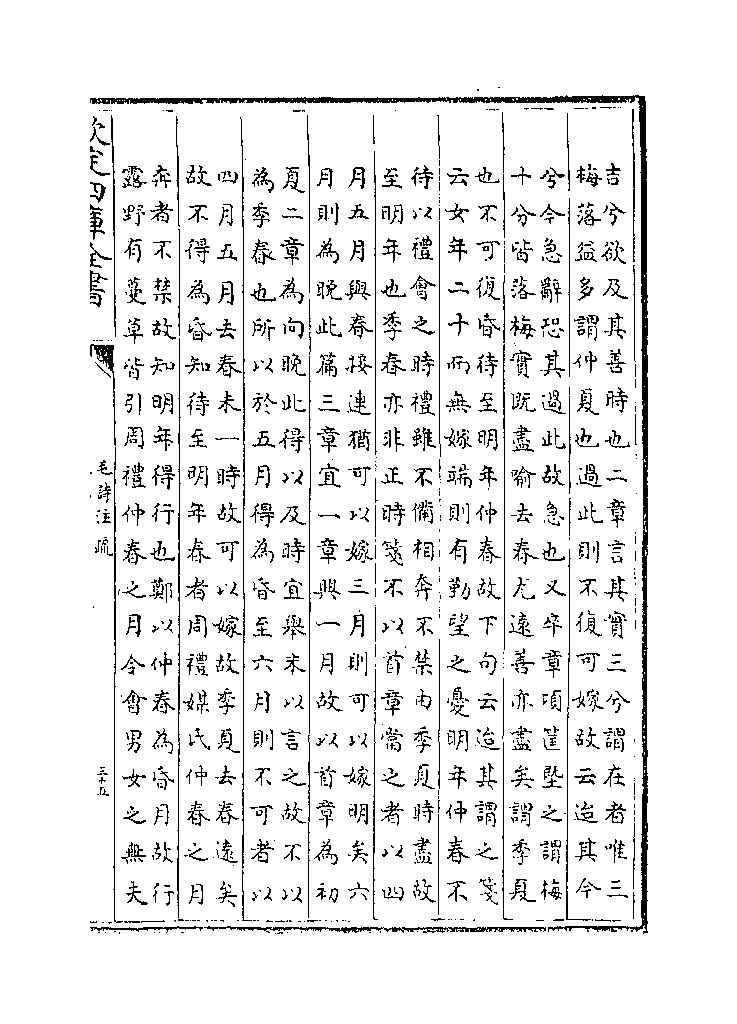 吉兮欲及其善時也二章言其實三兮謂在者唯三
梅落益多謂仲夏也過此則不復可嫁故云迨其今
兮今急辭恐其過此故急也又卒章頃筐塈之謂梅
十分皆落梅實既盡喻去春尤遠善亦盡矣謂季夏
也不可復昏待至明年仲春故下句云迨其謂之箋
云女年二十而無嫁端則有勤望之憂明年仲春不
待以禮會之時禮雖不備相奔不禁由季夏時盡故
至明年也季春亦非正時箋不以首章當之者以四
月五月與春接連猶可以嫁三月則可以嫁明矣六
月則為晚此篇三章宜一章興一月故以首章為初
夏二章為向晚此得以及時宜舉末以言之故不以
為季春也所以於五月得為昏至六月則不可者以
四月五月去春未一時故可以嫁故季夏去春遠矣
故不得為昏知待至明年春者周禮媒氏仲春之月
奔者不禁故知明年得行也鄭以仲春為昏月故行
露野有蔓草皆引周禮仲春之月令會男女之無夫
欽定四庫全書
毛詩注疏
三十五